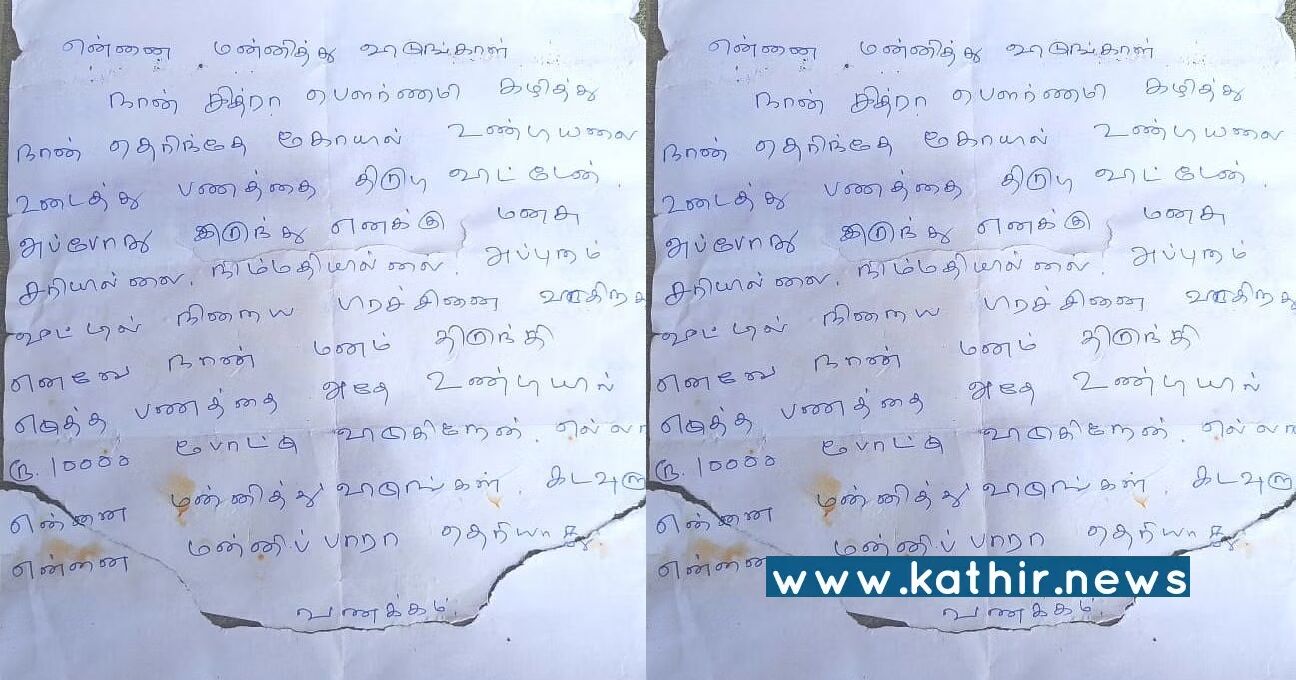 என்னை மன்னித்து விடுங்கள்
நான் சித்ரா பௌர்ணமி கழித்து
நான் தெரிந்தே கோயில் உண்டியலை
உடைத்து பணத்தை திருடி விட்டேன்.
அப்போது இருந்து எனக்கு மனசு
சரியில்லை. நிம்மதியில்லை. அப்புறம்
வீட்டில் நிறைய பிரச்சினை வருகிறது
எனவே நான் மனம் திருந்தி
எடுத்த பணத்தை அதே உண்டியில்
ரூ. 10000 போட்டு விடுகிறேன். எல்லா
என்னை மன்னித்து விடுங்கள். கடவுளு
என்னை மன்னிப்பாரா தெரியாது
வணக்கம்.
என்னை மன்னித்து விடுங்கள்
நான் சித்ரா பௌர்ணமி கழித்து
நான் தெரிந்தே கோயில் உண்டியலை
உடைத்து பணத்தை திருடி விட்டேன்.
அப்போது இருந்து எனக்கு மனசு
சரியில்லை. நிம்மதியில்லை. அப்புறம்
வீட்டில் நிறைய பிரச்சினை வருகிறது
எனவே நான் மனம் திருந்தி
எடுத்த பணத்தை அதே உண்டியில்
ரூ. 10000 போட்டு விடுகிறேன். எல்லா
என்னை மன்னித்து விடுங்கள். கடவுளு
என்னை மன்னிப்பாரா தெரியாது
www.kathir.news
வணக்கம்.